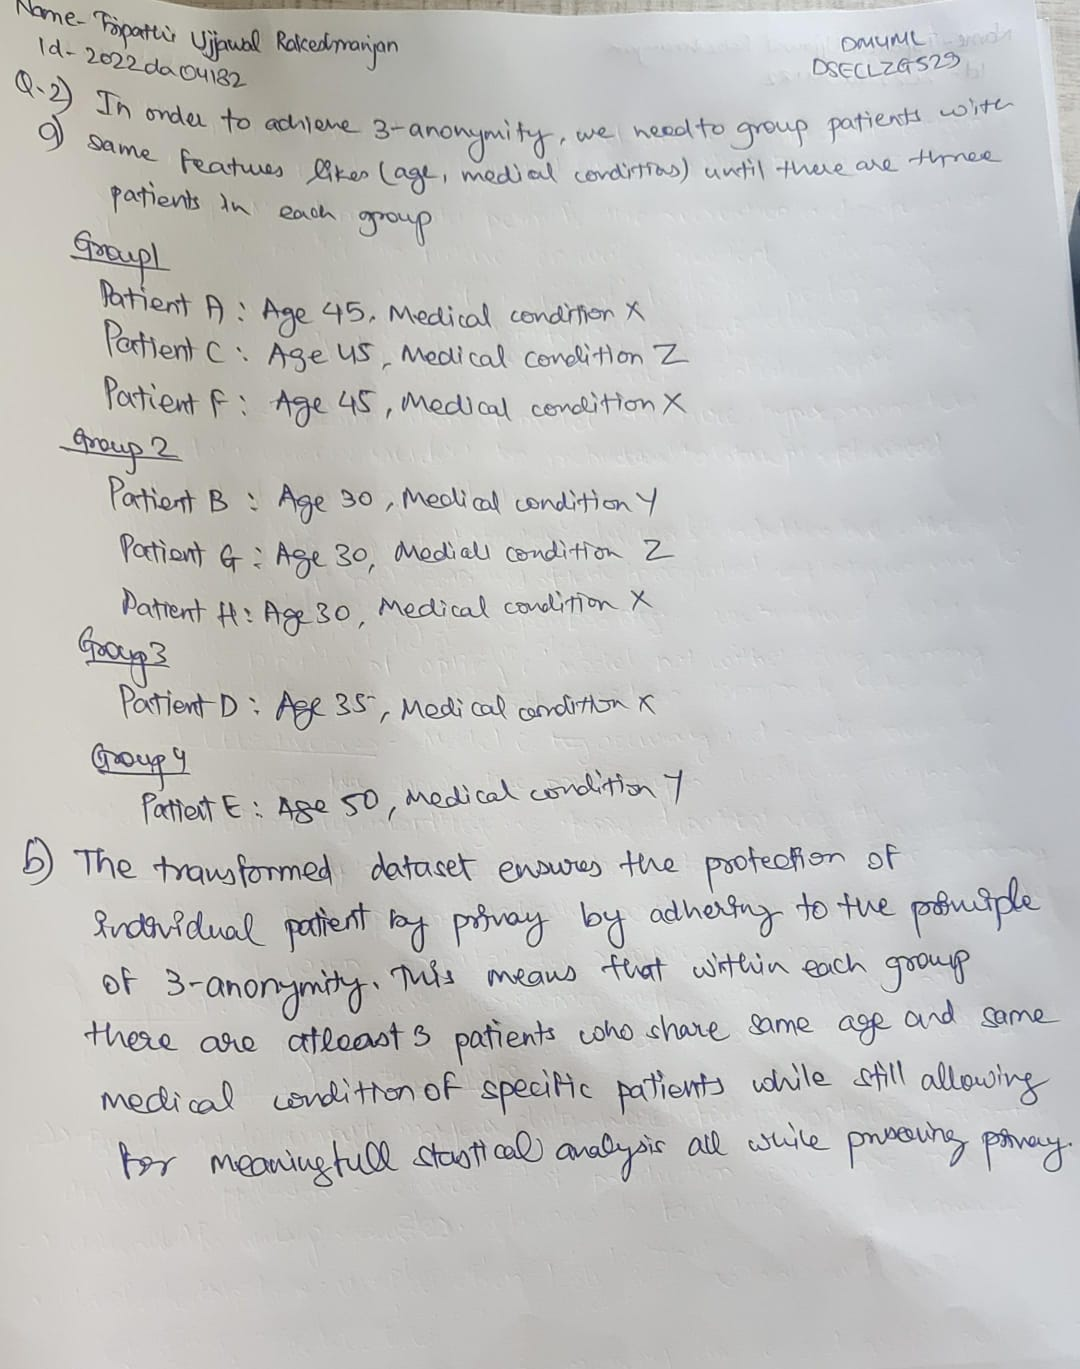 Name- Tripathi Ujjawal Rakedmranjan
Id- 2022da04182
DMUML
DSECLZG529
Q.2) In order to achieve 3-anonymity, we need to group patients with
a) same features likes (age, medical conditions) until there are three
patients in each group
Group1
Patient A : Age 45, Medical condition X
Patient C : Age 45, Medical condition Z
Patient F : Age 45, Medical condition X
Group 2
Patient B : Age 30, Medical condition Y
Patient G : Age 30, Medicall condition Z
Patient H : Age 30, Medical condition X
Group 3
Patient D : Age 35, Medical condition X
Group 4
Patient E : Age 50, Medical condition Y
b) The transformed dataset ensures the protection of
individual patient by privay by adhering to the principle
of 3-anonymity. This means that within each group
there are atleast 3 patients who share same age and same
medical condition of specific patients while still allowing
for meaningfull stastical analysis all while preseving privay.